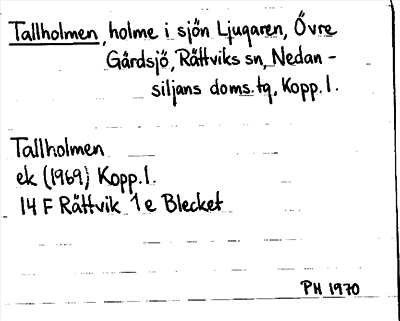 Tallholmen, holme i sjön Ljugaren, Övre
Gärdsjö, Rättviks sn, Nedan-
siljans doms.tg, Kopp.l.
Tallholmen
ek (1969) Kopp.l.
14 F Rättvik 1 e Blecket
PH 1970